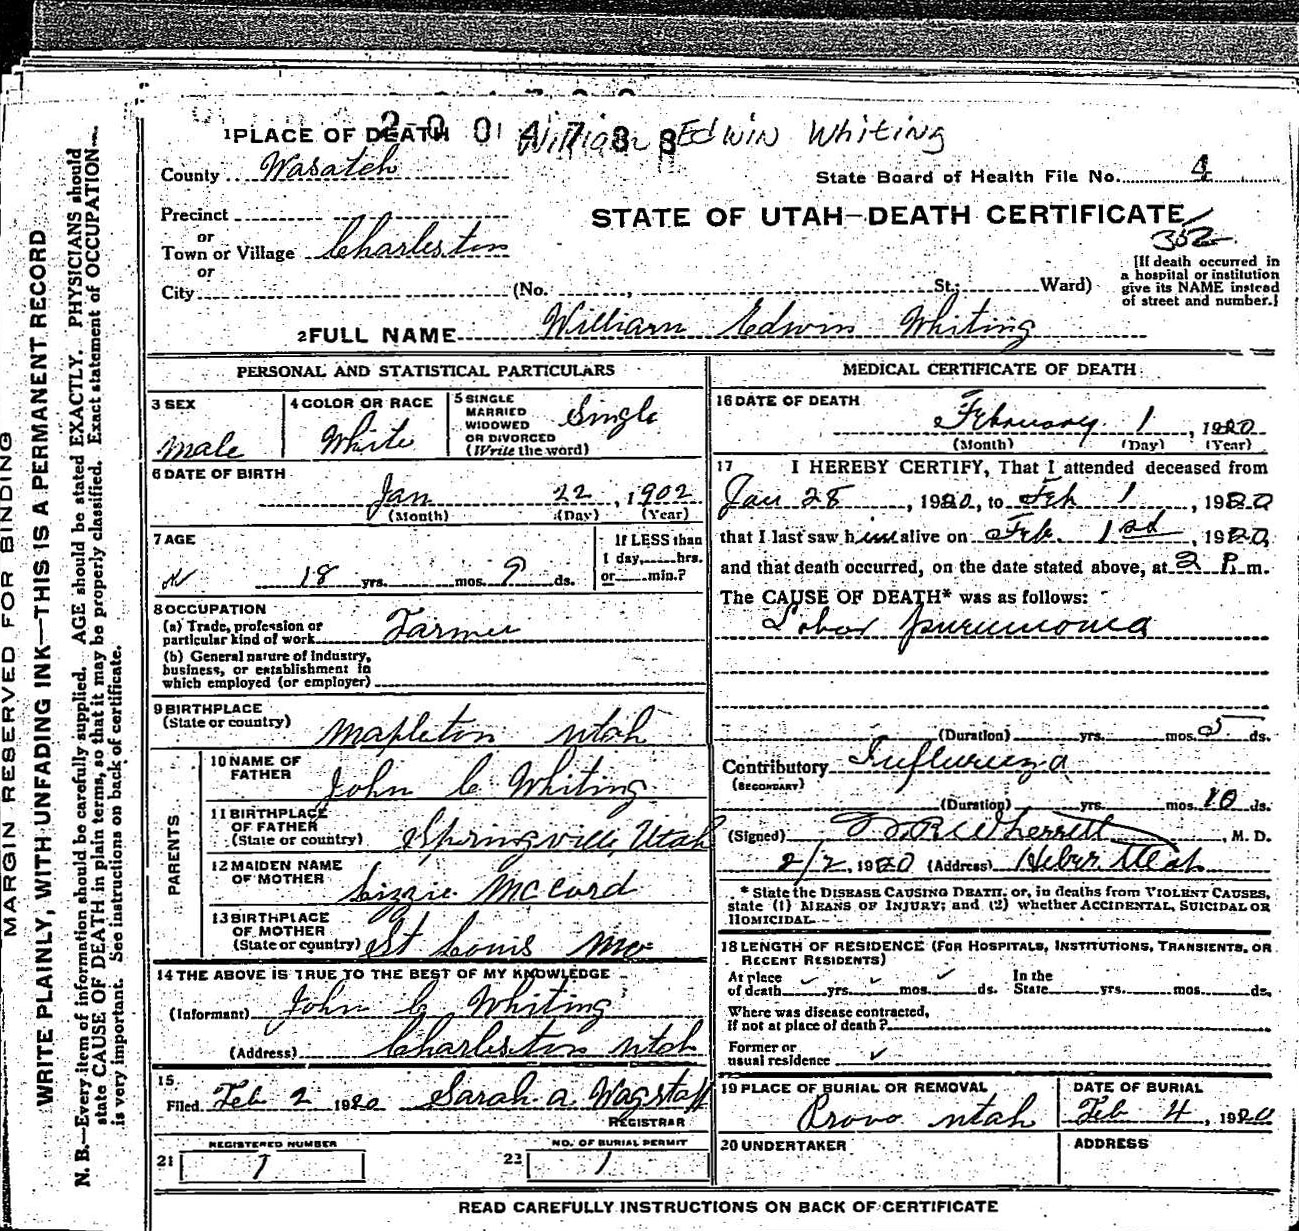 1 PLACE OF DEATH 2 0 0 4 7 8 8 William Edwin Whiting
County Wasatch
State Board of Health File No. 4
Precinct
or
STATE OF UTAH—DEATH CERTIFICATE
352
Town or Village Charleston
or
City (No. , St.; Ward)
[If death occurred in
a hospital or institution
give its NAME instead
of street and number.]
2 FULL NAME William Edwin Whiting
PERSONAL AND STATISTICAL PARTICULARS
3 SEX
Male
4 COLOR OR RACE
White
5 SINGLE
MARRIED
WIDOWED
OR DIVORCED
(Write the word)
Single
6 DATE OF BIRTH
Jan 22, 1902
(Month) (Day) (Year)
7 AGE
18 yrs. mos. 9 ds.
If LESS than
1 day, hrs.
or min.?
8 OCCUPATION
(a) Trade, profession or
particular kind of work Farmer
(b) General nature of industry,
business, or establishment in
which employed (or employer)
9 BIRTHPLACE
(State or country) Mapleton Utah
PARENTS
10 NAME OF
FATHER John C Whiting
11 BIRTHPLACE
OF FATHER
(State or country) Springville, Utah
12 MAIDEN NAME
OF MOTHER Lizzie McCord
13 BIRTHPLACE
OF MOTHER
(State or country) St Louis Mo
14 THE ABOVE IS TRUE TO THE BEST OF MY KNOWLEDGE
(Informant) John C Whiting
(Address) Charleston Utah
15
Filed Feb 2 1920 Sarah A. Wagstaff
REGISTRAR
REGISTERED NUMBER
21 1
NO. OF BURIAL PERMIT
22 1
MEDICAL CERTIFICATE OF DEATH
16 DATE OF DEATH
February 1, 1920
(Month) (Day) (Year)
17 I HEREBY CERTIFY, That I attended deceased from
Jan 28, 1920, to Feb 1, 1920
that I last saw him alive on Feb. 1sd, 1920,
and that death occurred, on the date stated above, at 2 P. m.
The CAUSE OF DEATH* was as follows:
Lobar pneumonia
(Duration) yrs. mos. 5 ds.
Contributory Influenza
(SECONDARY)
(Duration) yrs. mos. 10 ds.
(Signed) Wherritt, M. D.
2/2, 1920 (Address) Heber, Utah
* State the DISEASE CAUSING DEATH, or, in deaths from VIOLENT CAUSES,
state (1) MEANS OF INJURY; and (2) whether ACCIDENTAL, SUICIDAL OR
HOMICIDAL.
18 LENGTH OF RESIDENCE (FOR HOSPITALS, INSTITUTIONS, TRANSIENTS, OR
RECENT RESIDENTS)
At place
of death yrs. mos. ds.
In the
State yrs. mos. ds.
Where was disease contracted,
If not at place of death?
Former or
usual residence
19 PLACE OF BURIAL OR REMOVAL
Provo Utah
DATE OF BURIAL
Feb 4, 1920
20 UNDERTAKER
ADDRESS
READ CAREFULLY INSTRUCTIONS ON BACK OF CERTIFICATE
MARGIN RESERVED FOR BINDING
WRITE PLAINLY, WITH UNFADING INK—THIS IS A PERMANENT RECORD
N. B.—Every item of information should be carefully supplied. AGE should be stated EXACTLY. PHYSICIANS should
state CAUSE OF DEATH in plain terms, so that it may be properly classified. Exact statement of OCCUPATION
is very important. See instructions on back of certificate.